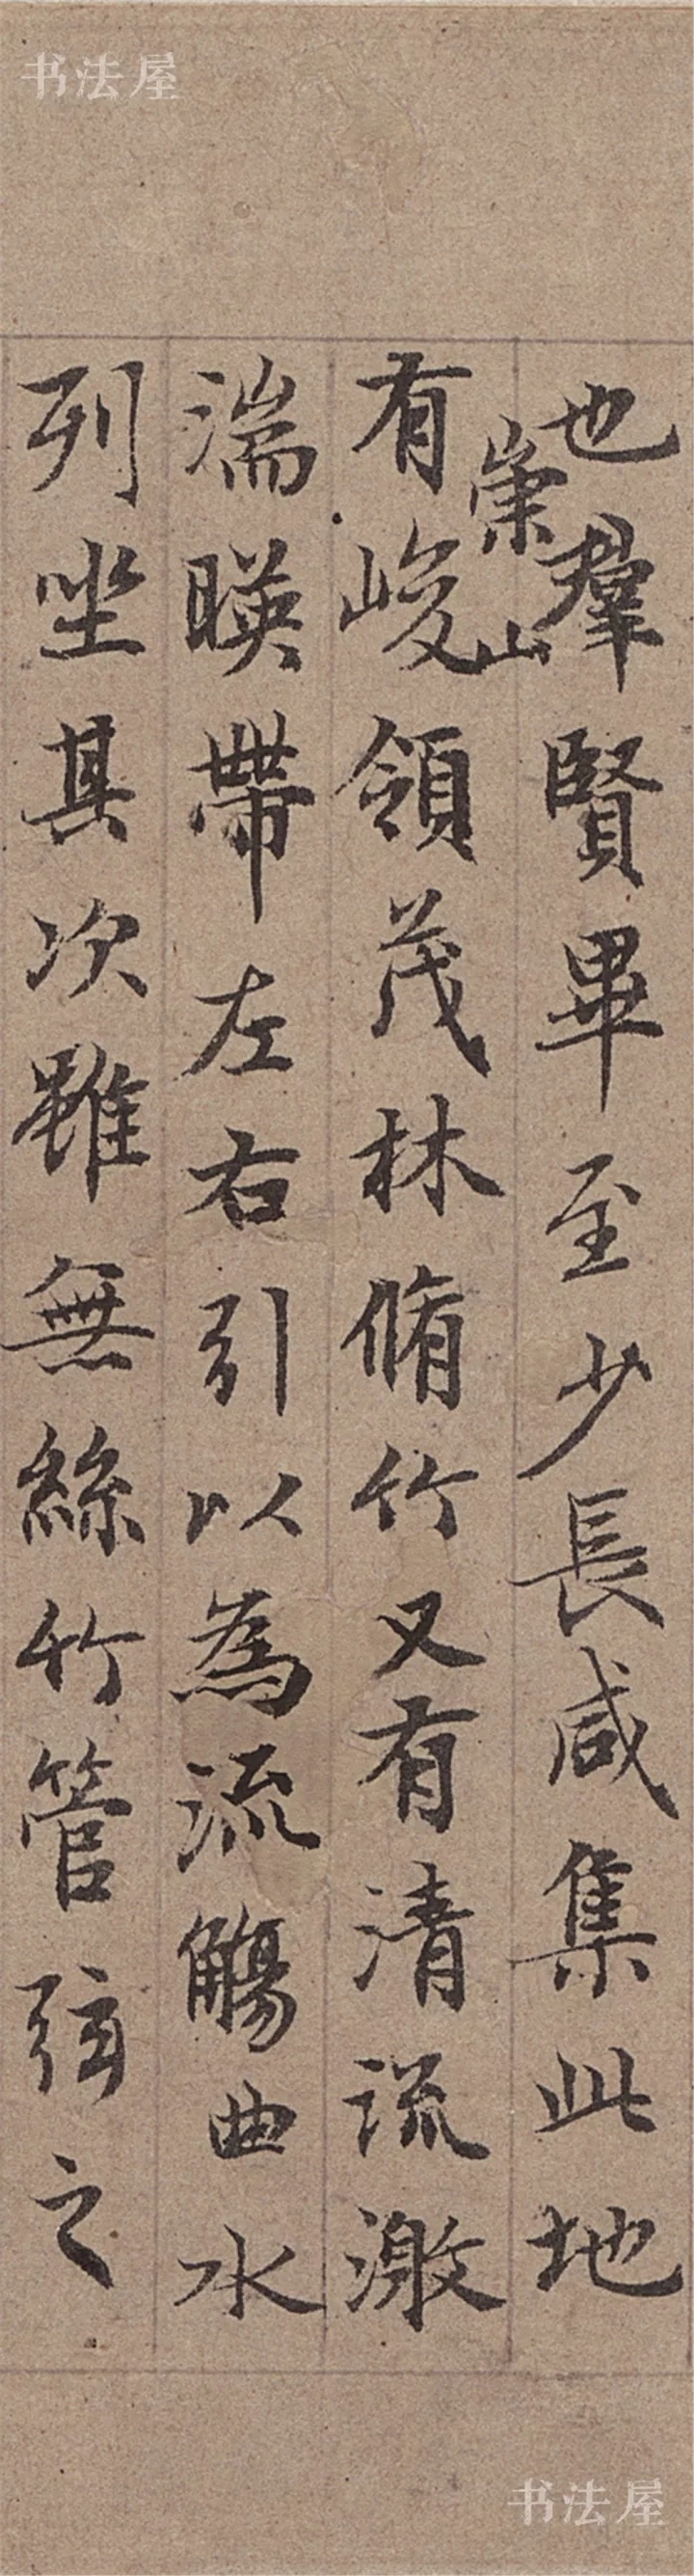 书法屋
也羣賢畢至少長咸集此地
崇山
有峻領茂林脩竹又有清流激
湍暎帶左右引以為流觴曲水
列坐其次雖無絲竹管弦之
书法屋